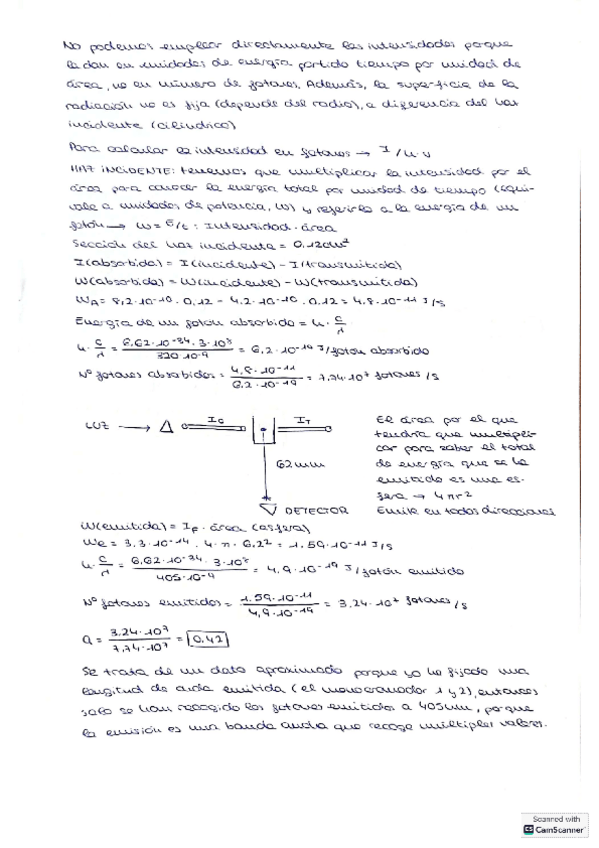 No podemos emplear directamente las intensidades porque
la dan en unidades de energía partido tiempo por unidad de
área, no en número de fotones. Además, la superficie de la
radiación no es fija (depende del radio), a diferencia del haz
incidente (cilíndrico)
Para calcular la intensidad en fotones → I/h·ν
HAZ INCIDENTE: tenemos que multiplicar la intensidad por el
área para conocer la energía total por unidad de tiempo (equi-
vale a unidades de potencia, W) y referirlo a la energía de un
fotón → W = E/t : Intensidad · área
Sección del haz incidente = 0.12cm²
I(absorbida) = I(incidente) - I(transmitida)
W(absorbida) = W(incidente) - W(transmitida)
WA = 8,2·10⁻¹⁰ · 0,12 - 4.2·10⁻¹⁰ · 0.12 = 4.8·10⁻¹¹ J/s
Energía de un fotón absorbido = h · c/λ
h · c/λ = 6,62·10⁻³⁴ · 3·10⁸ / 320·10⁻⁹ = 6,2·10⁻¹⁹ J/fotón absorbido
Nº fotones absorbidos = 4,8·10⁻¹¹ / 6.2·10⁻¹⁹ = 7.74·10⁷ fotones/s
LUZ → I₀ I_T
62mm
DETECTOR
El área por el que
tendría que multipli-
car para saber el total
de energía que se ha
emitido es una es-
fera → 4πr²
Emite en todas direcciones
W(emitida) = I_F · área (esfera)
We = 3,3·10⁻¹⁴ · 4·π·6,2² = 1.59·10⁻¹¹ J/s
h · c/λ = 6,62·10⁻³⁴ · 3·10⁸ / 405·10⁻⁹ = 4,9·10⁻¹⁹ J/fotón emitido
Nº fotones emitidos = 1.59·10⁻¹¹ / 4,9·10⁻¹⁹ = 3.24·10⁷ fotones/s
Q = 3.24·10⁷ / 7,74·10⁷ = 0.42
Se trata de un dato aproximado porque yo he fijado una
longitud de onda emitida (el monocromador 1 y 2), entonces
solo se han recogido los fotones emitidos a 405nm, porque
la emisión es una banda ancha que recoge múltiples valores.
Scanned with
CS CamScanner